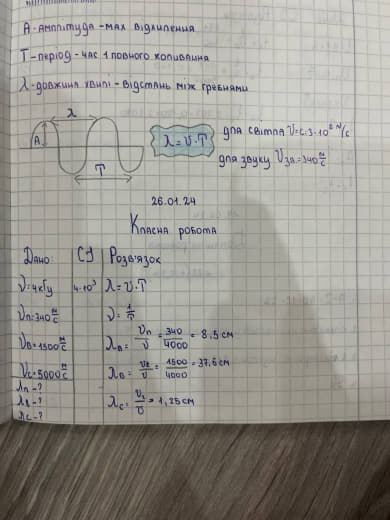 А-амплітуда - мах відхилення
Т-період - час 1 повного коливання
λ-довжина хвилі - відстань між гребнями
λ
А
Т
λ = υ·Т
для світла υ=с·3·10⁸ м/с
для звуку υзв.=340 м/с
26.01.24
Класна робота
Дано: СІ Розв'язок
ν=4кГц 4·10³ λ=υ·Т
υп=340 м/с ν=1/Т
υв=1500 м/с λп=υп/ν=340/4000=8,5см
υс=5000 м/с λв=υв/ν=1500/4000=37,5см
λп-?
λв-? λс=υс/ν=1,25см
λс-?